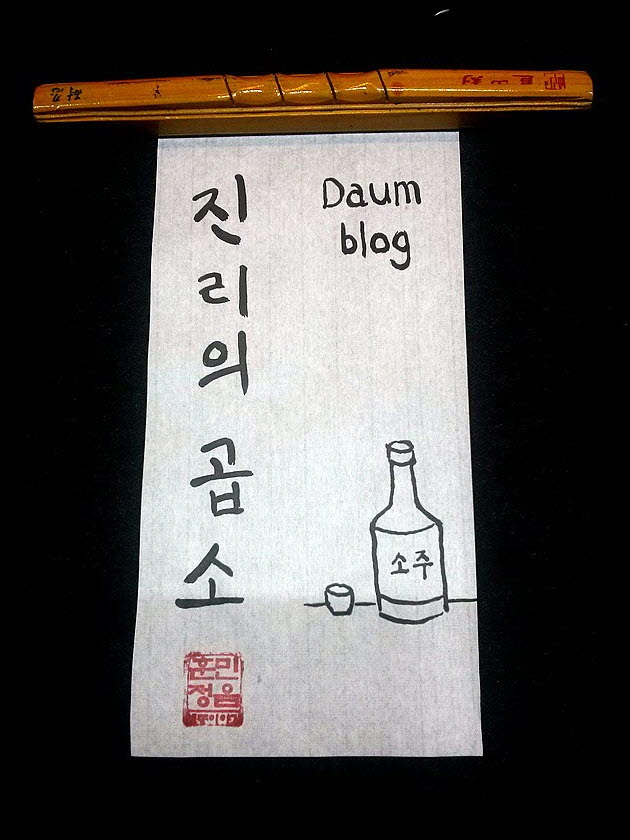 진리의 곱소
Daum
blog
소주
훈민
정음